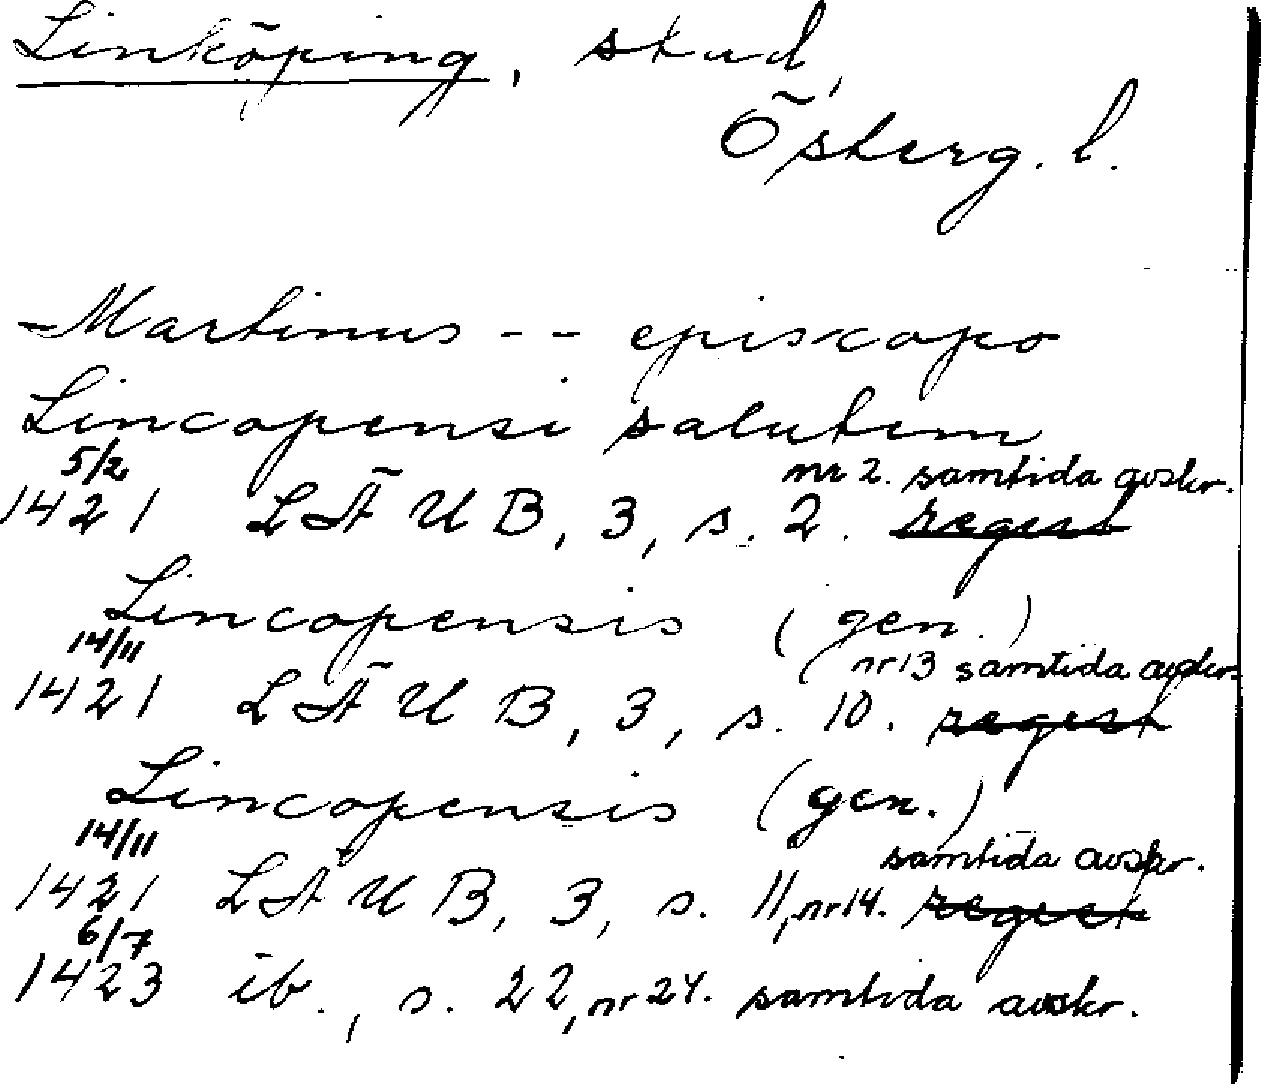 Linköping, stad,
Österg. l.
Martinus -- episcopo
Lincopensi salutem
5/2 nr 2. samtida avskr.
1421 LÄUB, 3, s. 2. regest
Lincopensis (gen.)
14/11 nr 13 samtida avskr.
1421 LÄUB, 3, s. 10. regest
Lincopensis (gen.)
14/11 samtida avskr.
1421 LÄUB, 3, s. 11, nr 14. regest
6/7
1423 ib., s. 22, nr 24. samtida avskr.